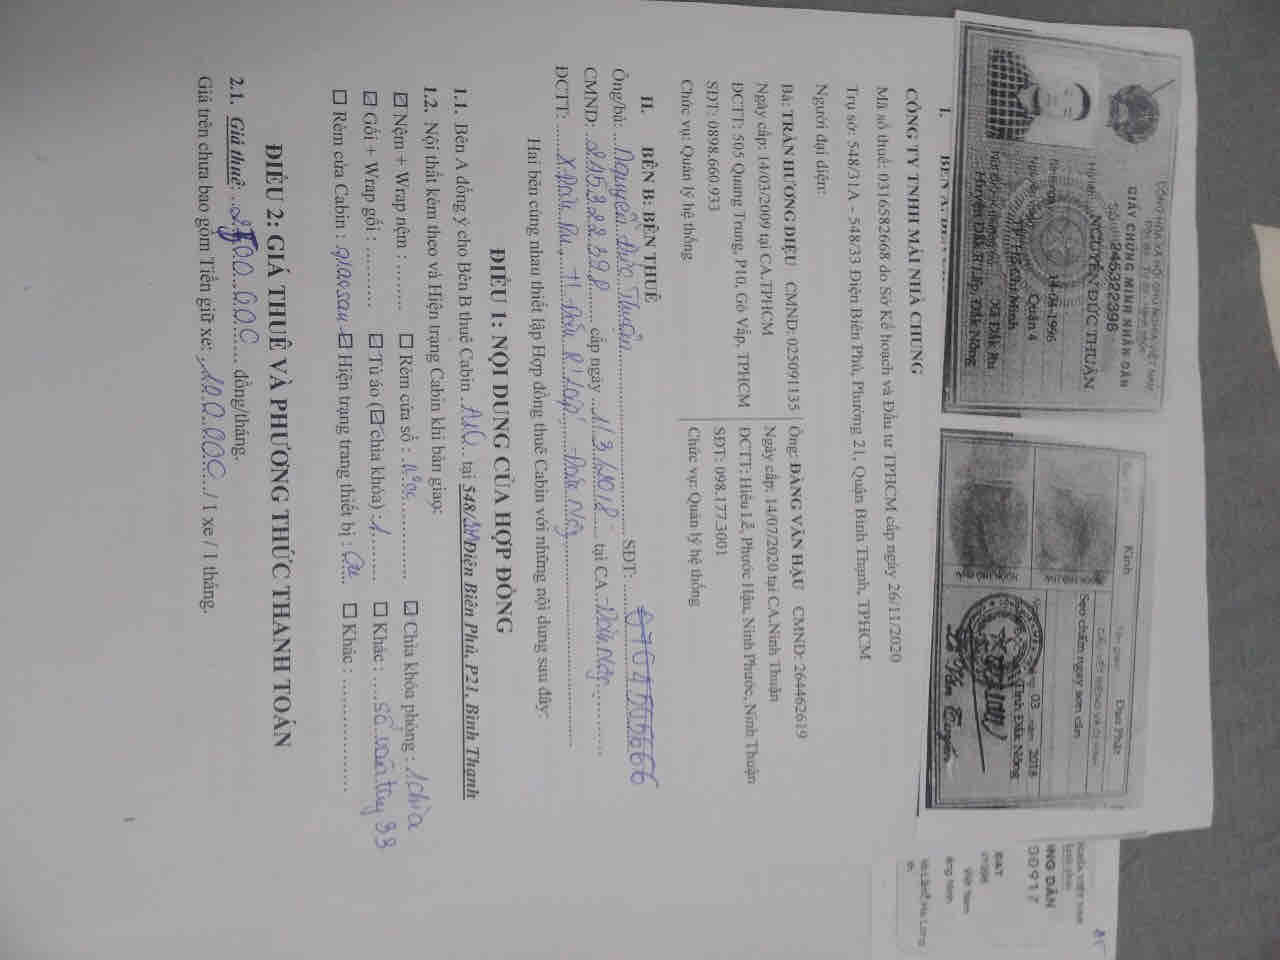 CỘNG HÒA XÃ HỘI CHỦ NGHĨA VIỆT NAM
GIẤY CHỨNG MINH NHÂN DÂN
245322398
NGUYỄN ĐỨC THUẬN
14-04-1996
Quận 4
TP Hồ Chí Minh
Xã Đắk Ru
Huyện Đắk R'Lấp, Đắk Nông
Kinh
Đạo Phật
Sẹo chấm ngay sơn căn
03 năm 2018
Tỉnh Đắk Nông
ING DÂN
00917
Việt Nam
Hạ Long
I.
CÔNG TY TNHH MÁI NHÀ CHUNG
Mã số thuế: 0316582668 do Sở Kế hoạch và Đầu tư TPHCM cấp ngày 26/11/2020
Trụ sở: 548/31A - 548/33 Điện Biên Phủ, Phường 21, Quận Bình Thạnh, TPHCM
Người đại diện:
Bà: TRẦN HƯƠNG DIỆU CMND: 025091135
Ngày cấp: 14/03/2009 tại CA.TPHCM
ĐCTT: 505 Quang Trung, P10, Gò Vấp, TPHCM
SĐT: 0898.660.933
Chức vụ: Quản lý hệ thống
Ông: ĐÀNG VĂN HẬU CMND: 264462619
Ngày cấp: 14/07/2020 tại CA.Ninh Thuận
ĐCTT: Hiếu Lễ, Phước Hậu, Ninh Phước, Ninh Thuận
SĐT: 098.177.3001
Chức vụ: Quản lý hệ thống
II. BÊN B: BÊN THUÊ
Ông/bà: Nguyễn Đức Thuận SĐT:
CMND: 245322398 cấp ngày 1/3/2018 tại CA Đăk Nông
ĐCTT: X Đăk Ru, H Đăk R'Lấp, Đăk Nông
Hai bên cùng nhau thiết lập Hợp đồng thuê Cabin với những nội dung sau đây:
ĐIỀU 1: NỘI DUNG CỦA HỢP ĐỒNG
1.1. Bên A đồng ý cho Bên B thuê Cabin tại 548/ Điện Biên Phủ, P21, Bình Thạnh
1.2. Nội thất kèm theo và Hiện trạng Cabin khi bàn giao:
☑ Nệm + Wrap nệm : ......... ☐ Rèm cửa sổ : ☑ Chìa khóa phòng : 1 chìa
☑ Gối + Wrap gối : ......... ☑ Tủ áo (☑ chìa khóa) 1 ☐ Khác : số vân tay 93
☐ Rèm cửa Cabin : giao sau ☑ Hiện trạng trang thiết bị : ☐ Khác : .........
ĐIỀU 2: GIÁ THUÊ VÀ PHƯƠNG THỨC THANH TOÁN
2.1. Giá thuê: đồng/tháng.
Giá trên chưa bao gồm Tiền giữ xe: / 1 xe / 1 tháng.